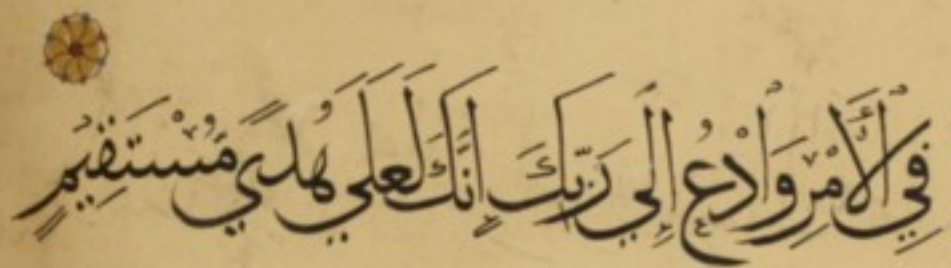 فِي الْأَمْرِ وَادْعُ إِلَى رَبِّكَ إِنَّكَ لَعَلَى هُدًى مُسْتَقِيمٍ